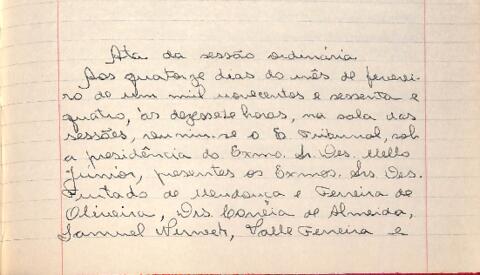 Ata da sessão ordinária
Aos quatorze dias do mês de feverei-
ro de um mil novecentos e sessenta e
quatro, às dezessete horas, na sala das
sessões, reuniu-se o E. Tribunal, sob
a presidência do Exmo. Sr. Des. Mello
Junior, presentes os Exmos. Srs. Des.
Furtado de Mendonça e Ferreira de
Oliveira, Drs. Corrêia de Almeida,
Samuel Werneck, Valle Ferreira e